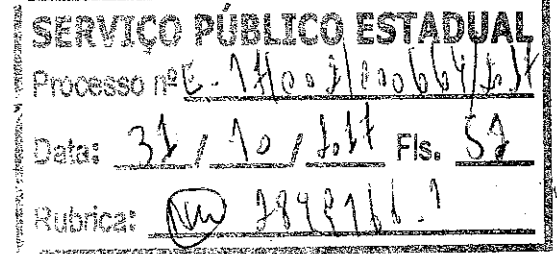 SERVIÇO PÚBLICO ESTADUAL
Processo nº E-17/002/000664/2017
Data: 31 / 10 / 2017 Fls. 52
Rubrica: